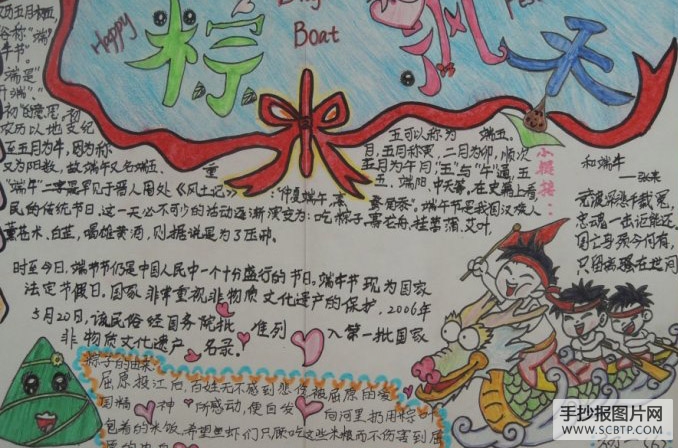 Happy
Boat
粽
飘
天
历五月初五
俗称"端
午节"。
端是"
开端"、"
初"的意思,初
农历以地支纪
至五月为午,因为称
又为阳数,故端午又名端五、
重
五可以称为 端五。
月,五月称
二月为卯,顺次
五月为午月
"五"与"午"通,五
五、端阳、中天等。在史籍上看
"端午"二字最早见于晋人周处《风土记》:
"仲夏端午,
端午节是我国汉族人
民的传统节日,这一天必不可少的活动逐渐演变为:吃粽子,赛龙舟,挂菖蒲、艾叶,
薰苍术、白芷,喝雄黄酒,则据说是为了压邪。
小链接:
和端午
——张耒
竞渡深悲千载冤,
忠魂一去讵能还。
国亡身殒今何有,
只留离骚在世间
时至今日,端午节仍是中国人民中一个十分盛行的节日,端午节现为国家
法定节假日,国家非常重视非物质文化遗产的保护,2006年
5月20日,该民俗经国务院批 准列 入第一批国家
非物质文化遗产 名录。
粽子的由来
屈原投江后,百姓无不感到悲伤,被屈原的爱
国精 神 所感动,便自发 向河里扔用粽叶
包着的米饭,希望鱼虾们只顾吃这些米粮而不伤害到屈
手抄报图片网
WWW.SCBTP.COM